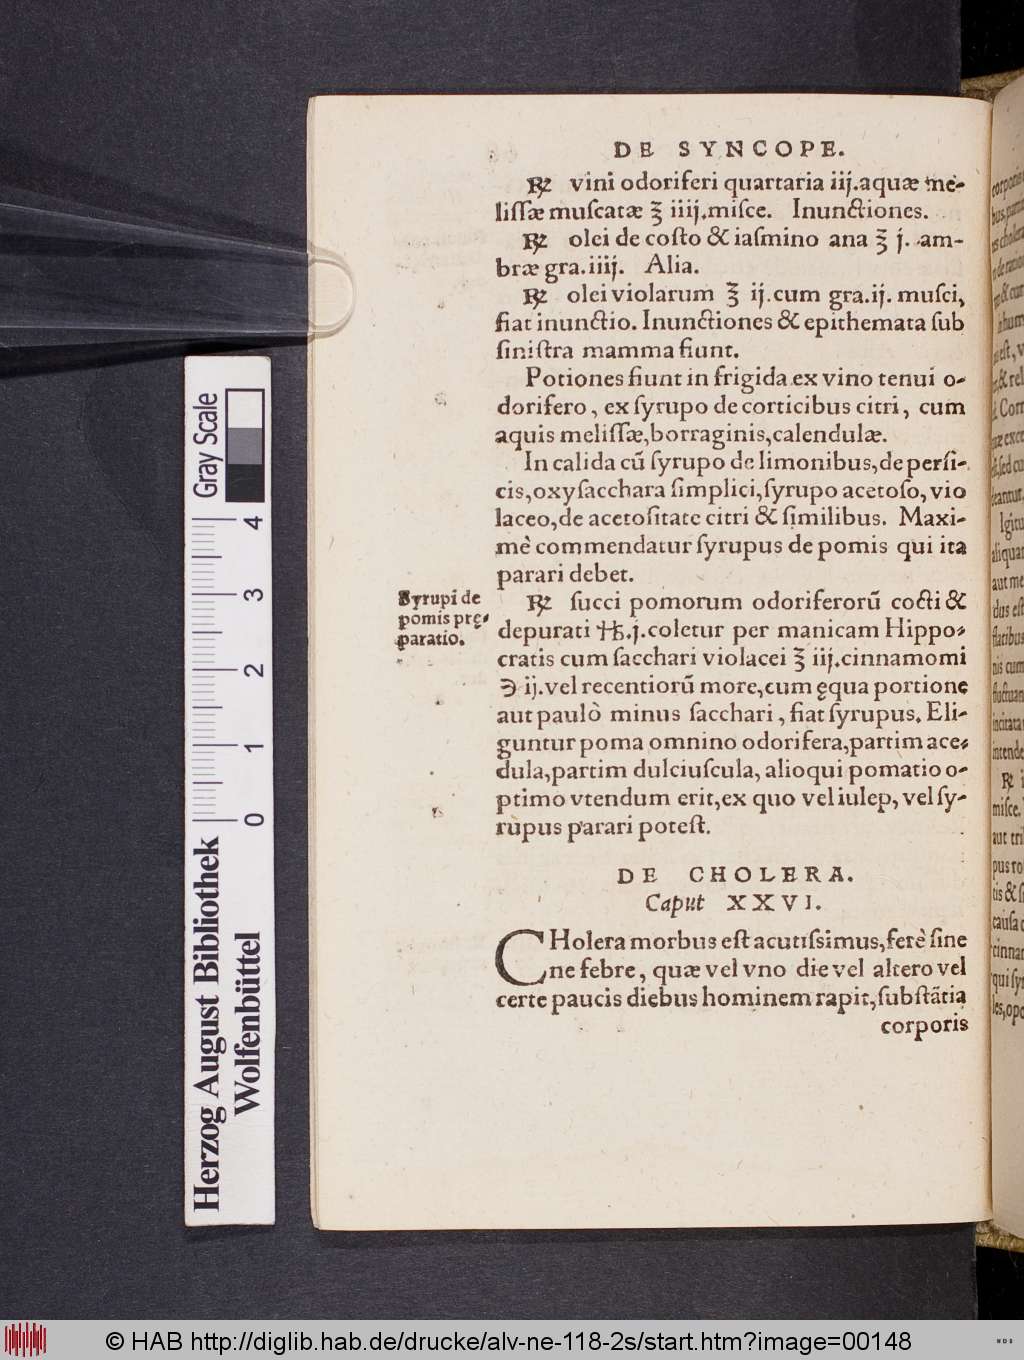 DE SYNCOPE.
℞ vini odoriferi quartaria iij. aquæ me-
liſſæ muſcatæ ℥ iiij. miſce. Inunctiones.
℞ olei de coſto & iaſmino ana ℥ j. am-
bræ gra. iiij. Alia.
℞ olei violarum ℥ ij. cum gra. ij. muſci,
fiat inunctio. Inunctiones & epithemata ſub
ſiniſtra mamma fiunt.
Potiones fiunt in frigida ex vino tenui o-
dorifero, ex ſyrupo de corticibus citri, cum
aquis meliſſæ, borraginis, calendulæ.
In calida cū ſyrupo de limonibus, de perſi-
cis, oxyſacchara ſimplici, ſyrupo acetoſo, vio
laceo, de acetoſitate citri & ſimilibus. Maxi-
mè commendatur ſyrupus de pomis qui ita
parari debet.
Syrupi de
pomis prę-
paratio.
℞ ſucci pomorum odoriferorū cocti &
depurati ℔. j. coletur per manicam Hippo-
cratis cum ſacchari violacei ℥ iij. cinnamomi
℈ ij. vel recentiorū more, cum ęqua portione
aut paulò minus ſacchari, fiat ſyrupus. Eli-
guntur poma omnino odorifera, partim ace-
dula, partim dulciuſcula, alioqui pomatio o-
ptimo vtendum erit, ex quo vel iulep, vel ſy-
rupus parari poteſt.
DE CHOLERA.
Caput XXVI.
CHolera morbus eſt acutiſsimus, ferè ſine
ne febre, quæ vel vno die vel altero vel
certe paucis diebus hominem rapit, ſubſtātia
corporis
Gray Scale
4
3
2
1
0
Herzog August Bibliothek
Wolfenbüttel
© HAB http://diglib.hab.de/drucke/alv-ne-118-2s/start.htm?image=00148